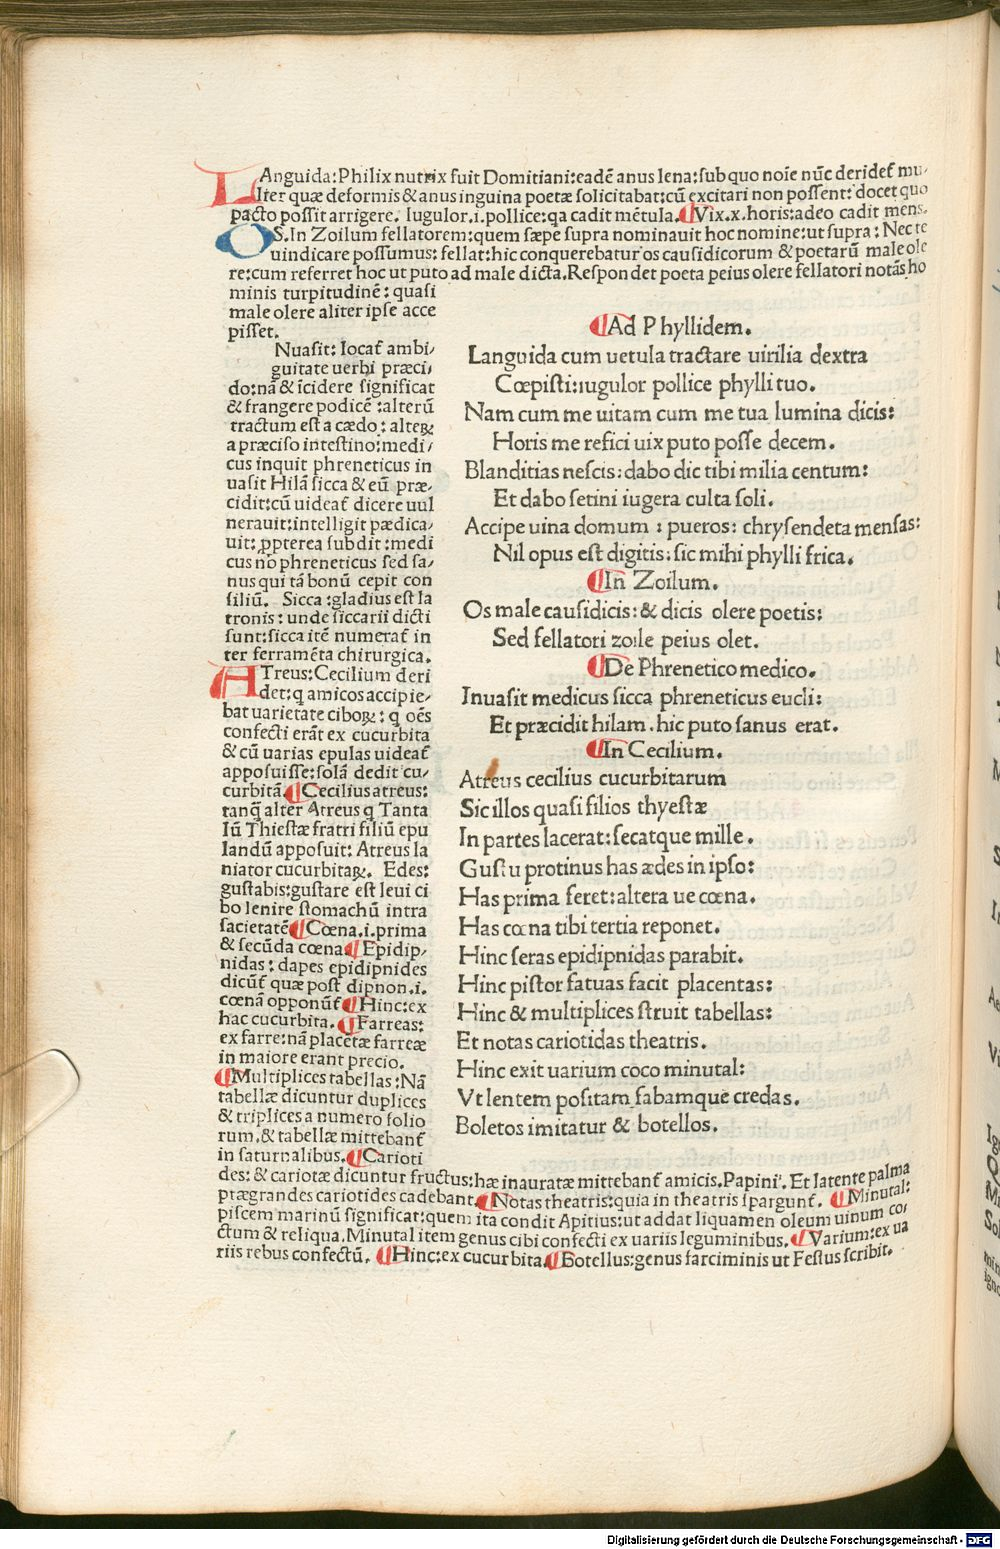 LAnguida:Philix nutrix fuit Domitiani:eadē anus lena:sub quo noīe nūc deridet̄ mu
lIter quæ deformis & anus inguina poetæ solicitabat:cū excitari non possent: docet quo
pacto possit arrigere. Iugulor.i.pollice:qa cadit mētula. ¶Vix.x.horis:adeo cadit mens.
OS.In Zoilum fellatorem:quem sæpe supra nominauit hoc nomine:ut supra: Nec te
uindicare possumus: fellat:hic conquerebatur os causidicorum & poetarū male ole
re:cum referret hoc ut puto ad male dicta.Respon det poeta peius olere fellatori notās ho
minis turpitudinē: quasi
male olere aliter ipse acce
pisset.
Nuasit: locat̄ ambi/
guitate uerbi præci/
do:nā & īcidere significat
& frangere podicē :alterū
tractum est a cædo: alteꝝ
a præciso intestino:medi/
cus inquit phreneticus in
uasit Hilā sicca & eū præ/
cidit:cū uideat̄ dicere uul
nerauit:intelligit pædica/
uit: ꝓpterea subdit :medi
cus nō phreneticus sed sa/
nus qui tā bonū cepit con
siliū. Sicca :gladius est la
tronis : unde siccarii dicti
sunt:sicca itē numerat̄ in
ter ferramēta chirurgica.
ATreus:Cecilium deri
det:q amicos accipie/
bat uarietate ciboꝝ: q oēs
confecti erāt ex cucurbita
& cū uarias epulas uideat̄
apposuisse:solā dedit cu/
curbitā ¶Cecilius atreus:
tanq̄ alter Atreus q Tanta
lū Thiestæ fratri filiū epu
landū apposuit: Atreus la
niator cucurbitaꝝ. Edes:
gustabis:gustare est leui ci
bo lenire stomachū intra
sacietatē ¶Cœna.i.prima
& secūda cœna ¶Epidip/
nidas: dapes epidipnides
dicūt̄ quæ post dipnon.i.
cœnā opponūt̄ ¶Hinc:ex
hac cucurbita. ¶Farreas:
ex farre:nā placetæ farreæ
in maiore erant precio.
¶Multiplices tabellas:Nā
tabellæ dicuntur duplices
& triplices a numero folio
rum.& tabellæ mittebant̄
in saturnalibus. ¶Carioti
des: & cariotæ dicuntur fructus:hæ inauratæ mittebant̄ amicis.Papini'. Et latente palma
prægrandes cariotides cadebant. ¶Notas theatris:quia in theatris spargunt̄. ¶Minutal:
piscem marinū significat:quem ita condit Apitius:ut addat liquamen oleum uinum co/
ctum & reliqua.Minutal item genus cibi confecti ex uariis leguminibus. ¶Varium:ex ua
riis rebus confectū. ¶Hinc:ex cucurbita. ¶Botellus:genus farciminis ut Festus scribit.
¶Ad Phyllidem.
Languida cum uetula tractare uirilia dextra
Cœpisti:iugulor pollice phylli tuo.
Nam cum me uitam cum me tua lumina dicis:
Horis me refici uix puto posse decem.
Blanditias nescis:dabo dic tibi milia centum:
Et dabo setini iugera culta soli.
Accipe uina domum : pueros: chrysendeta mensas:
Nil opus est digitis: sic mihi phylli frica.
¶In Zoilum.
Os male causidicis: & dicis olere poetis:
Sed fellatori zoile peius olet.
¶De Phrenetico medico.
Inuasit medicus sicca phreneticus eucli:
Et præcidit hilam.hic puto sanus erat.
¶In Cecilium.
Atreus cecilius cucurbitarum
Sic illos quasi filios thyestæ
In partes lacerat:secatque mille.
Gustu protinus has ædes in ipso:
Has prima feret:altera ue cœna.
Has cœna tibi tertia reponet.
Hinc seras epidipnidas parabit.
Hinc pistor fatuas facit placentas:
Hinc & multiplices struit tabellas:
Et notas cariotidas theatris.
Hinc exit uarium coco minutal:
Vt lentem positam fabamque credas.
Boletos imitatur & botellos.
Digitalisierung gefördert durch die Deutsche Forschungsgemeinschaft - DFG